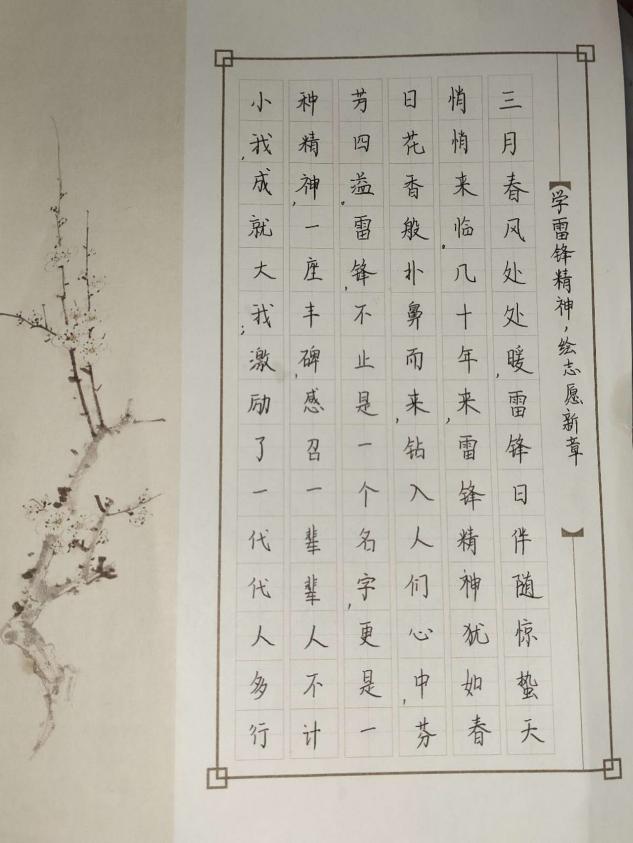 学雷锋精神，绘志愿新章
三月春风处处暖，雷锋日伴随惊蛰天
悄悄来临。几十年来，雷锋精神犹如春
日花香般扑鼻而来，钻入人们心中，芬
芳四溢。雷锋，不止是一个名字，更是一
种精神，一座丰碑，感召一辈辈人不计
小我，成就大我；激励了一代代人多行